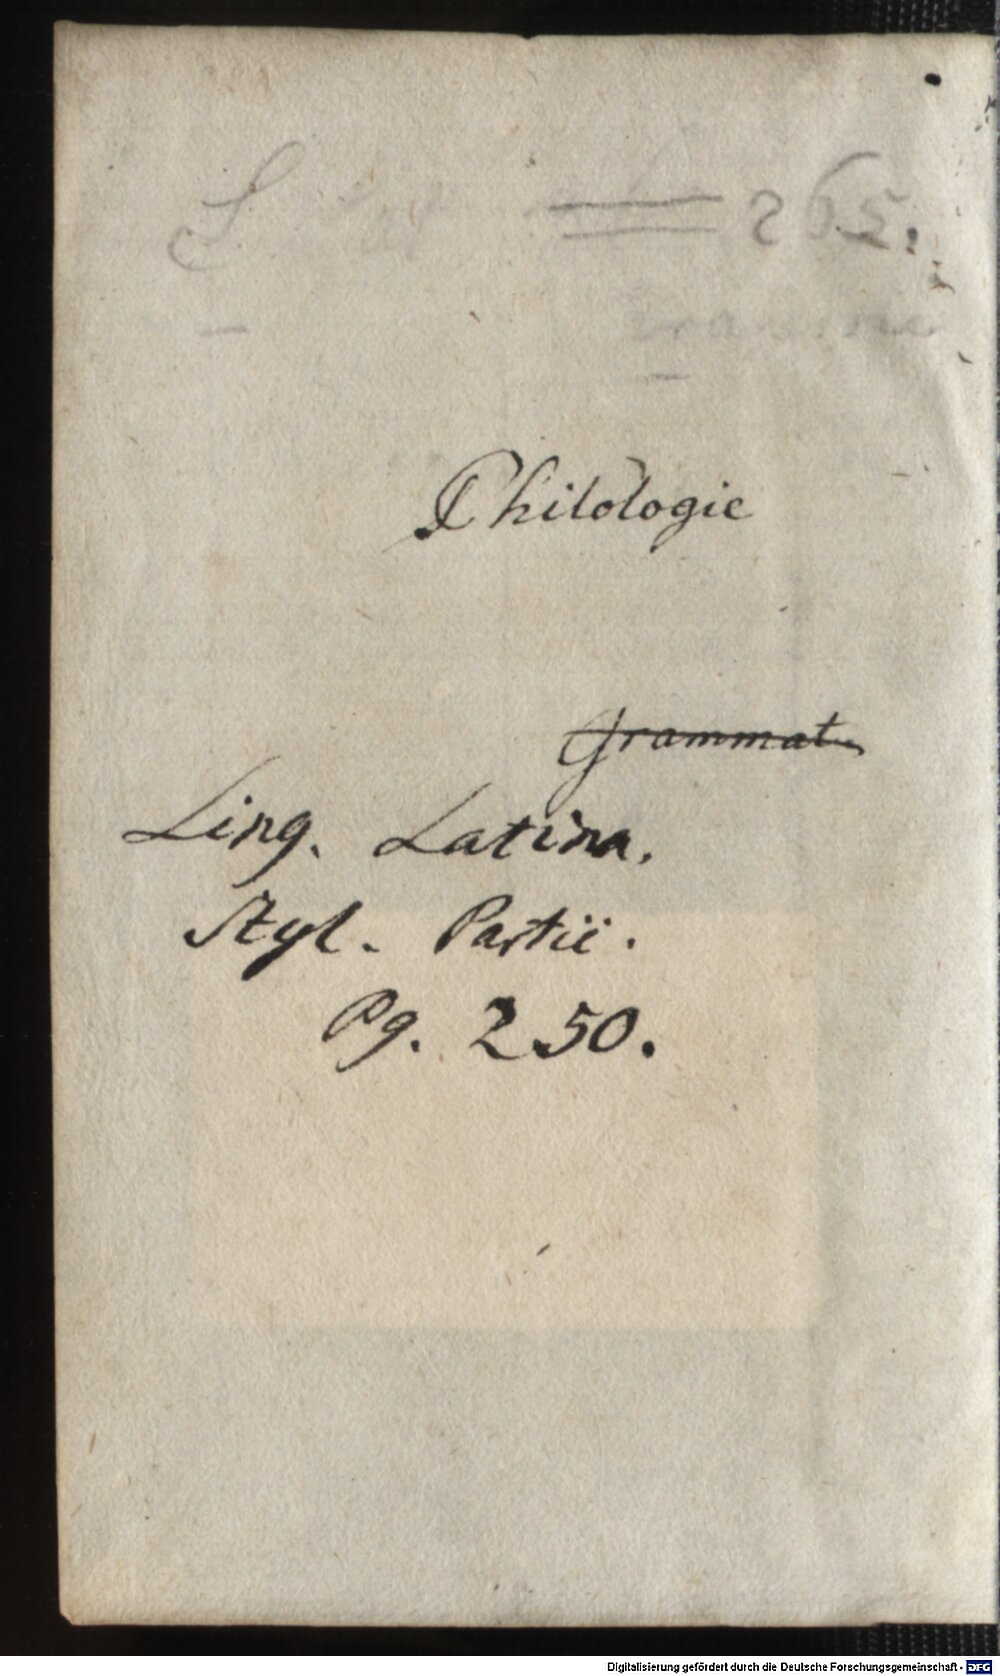 265.
Philologie
Grammat.
Ling. Latina.
Styl. Partic.
Pg. 250.
Digitalisierung gefördert durch die Deutsche Forschungsgemeinschaft - DFG